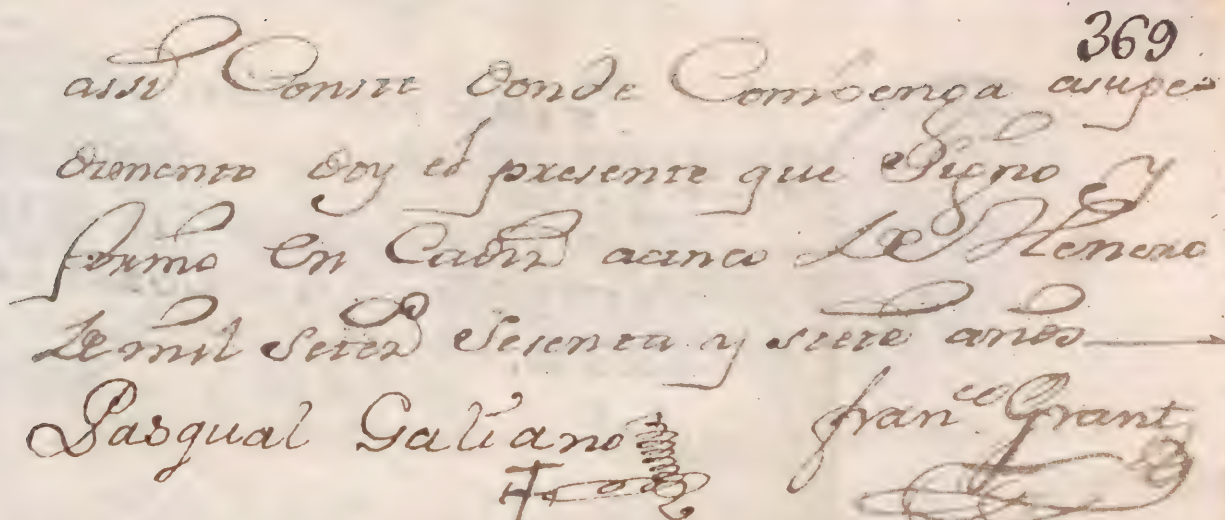 369
assi Conste donde Combenga asupe
dimento doy el presente que Signo y
firmo En Cadiz acinco de Henero
de mil seteз sesenta y siete años
Pasqual Galiano
fran.co Grant